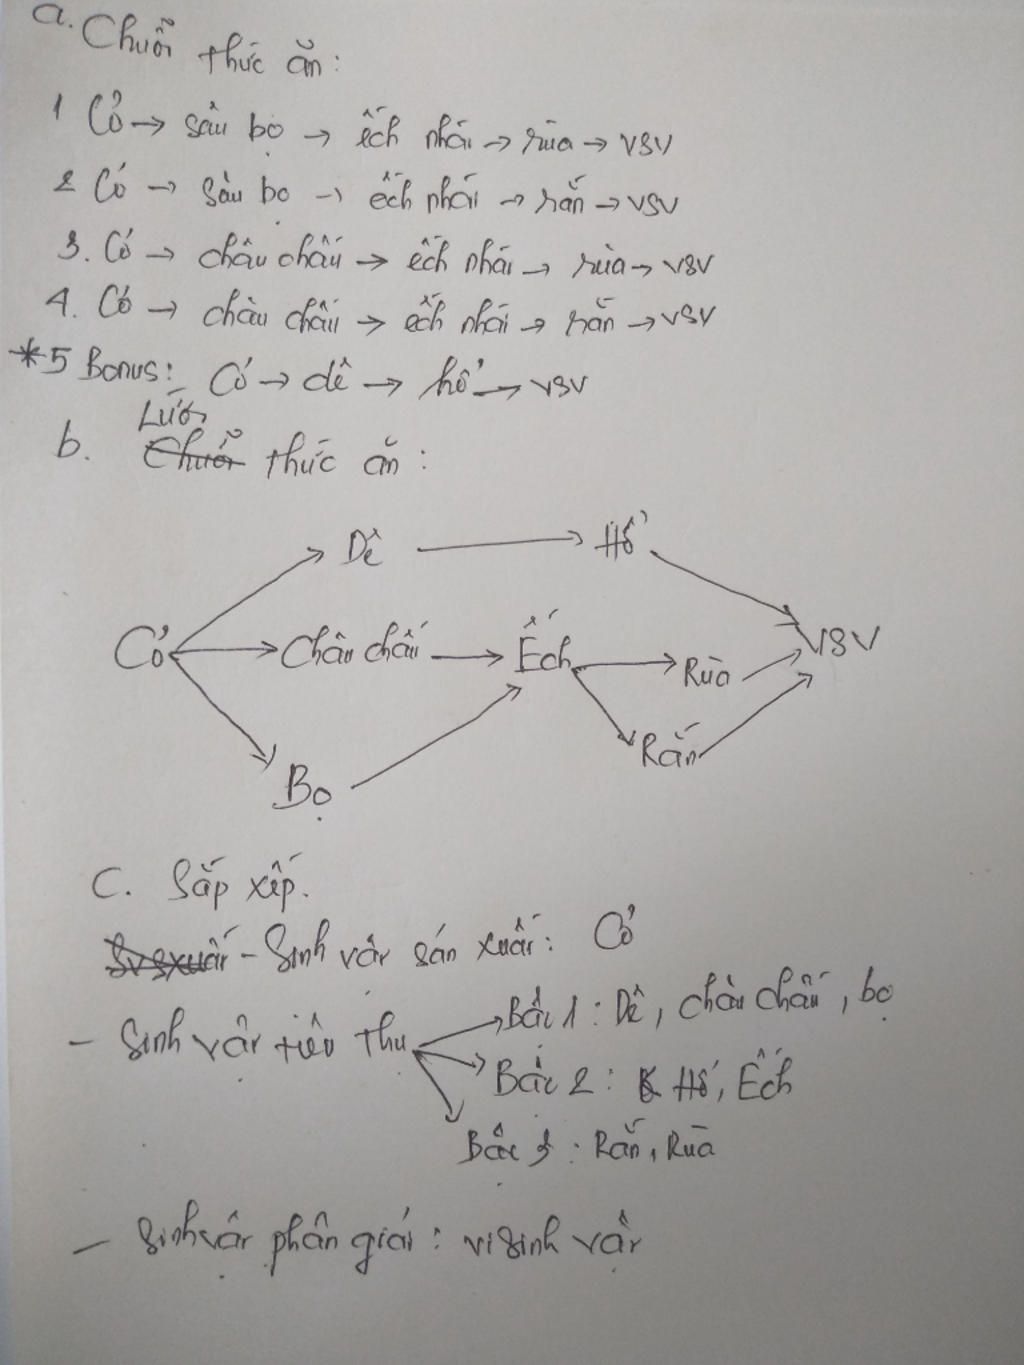 a. Chuỗi thức ăn:
1 Cỏ → sâu bọ → ếch nhái → rùa → VSV
2 Cỏ → sâu bọ → ếch nhái → rắn → VSV
3. Cỏ → châu chấu → ếch nhái → rùa → VSV
4. Cỏ → châu chấu → ếch nhái → rắn → VSV
*5 Bonus: Cỏ → dê → hổ → VSV
Lưới
b. Chuỗi thức ăn:
Dê → Hổ
Cỏ → Châu chấu → Ếch → Rùa → VSV
Rắn
Bọ
C. Sắp xếp.
- Sinh vật sản xuất: Cỏ
- Sinh vật tiêu thụ → Bậc 1: Dê, châu chấu, bọ
Bậc 2: Hổ, Ếch
Bậc 3: Rắn, Rùa
- Sinh vật phân giải: vi sinh vật